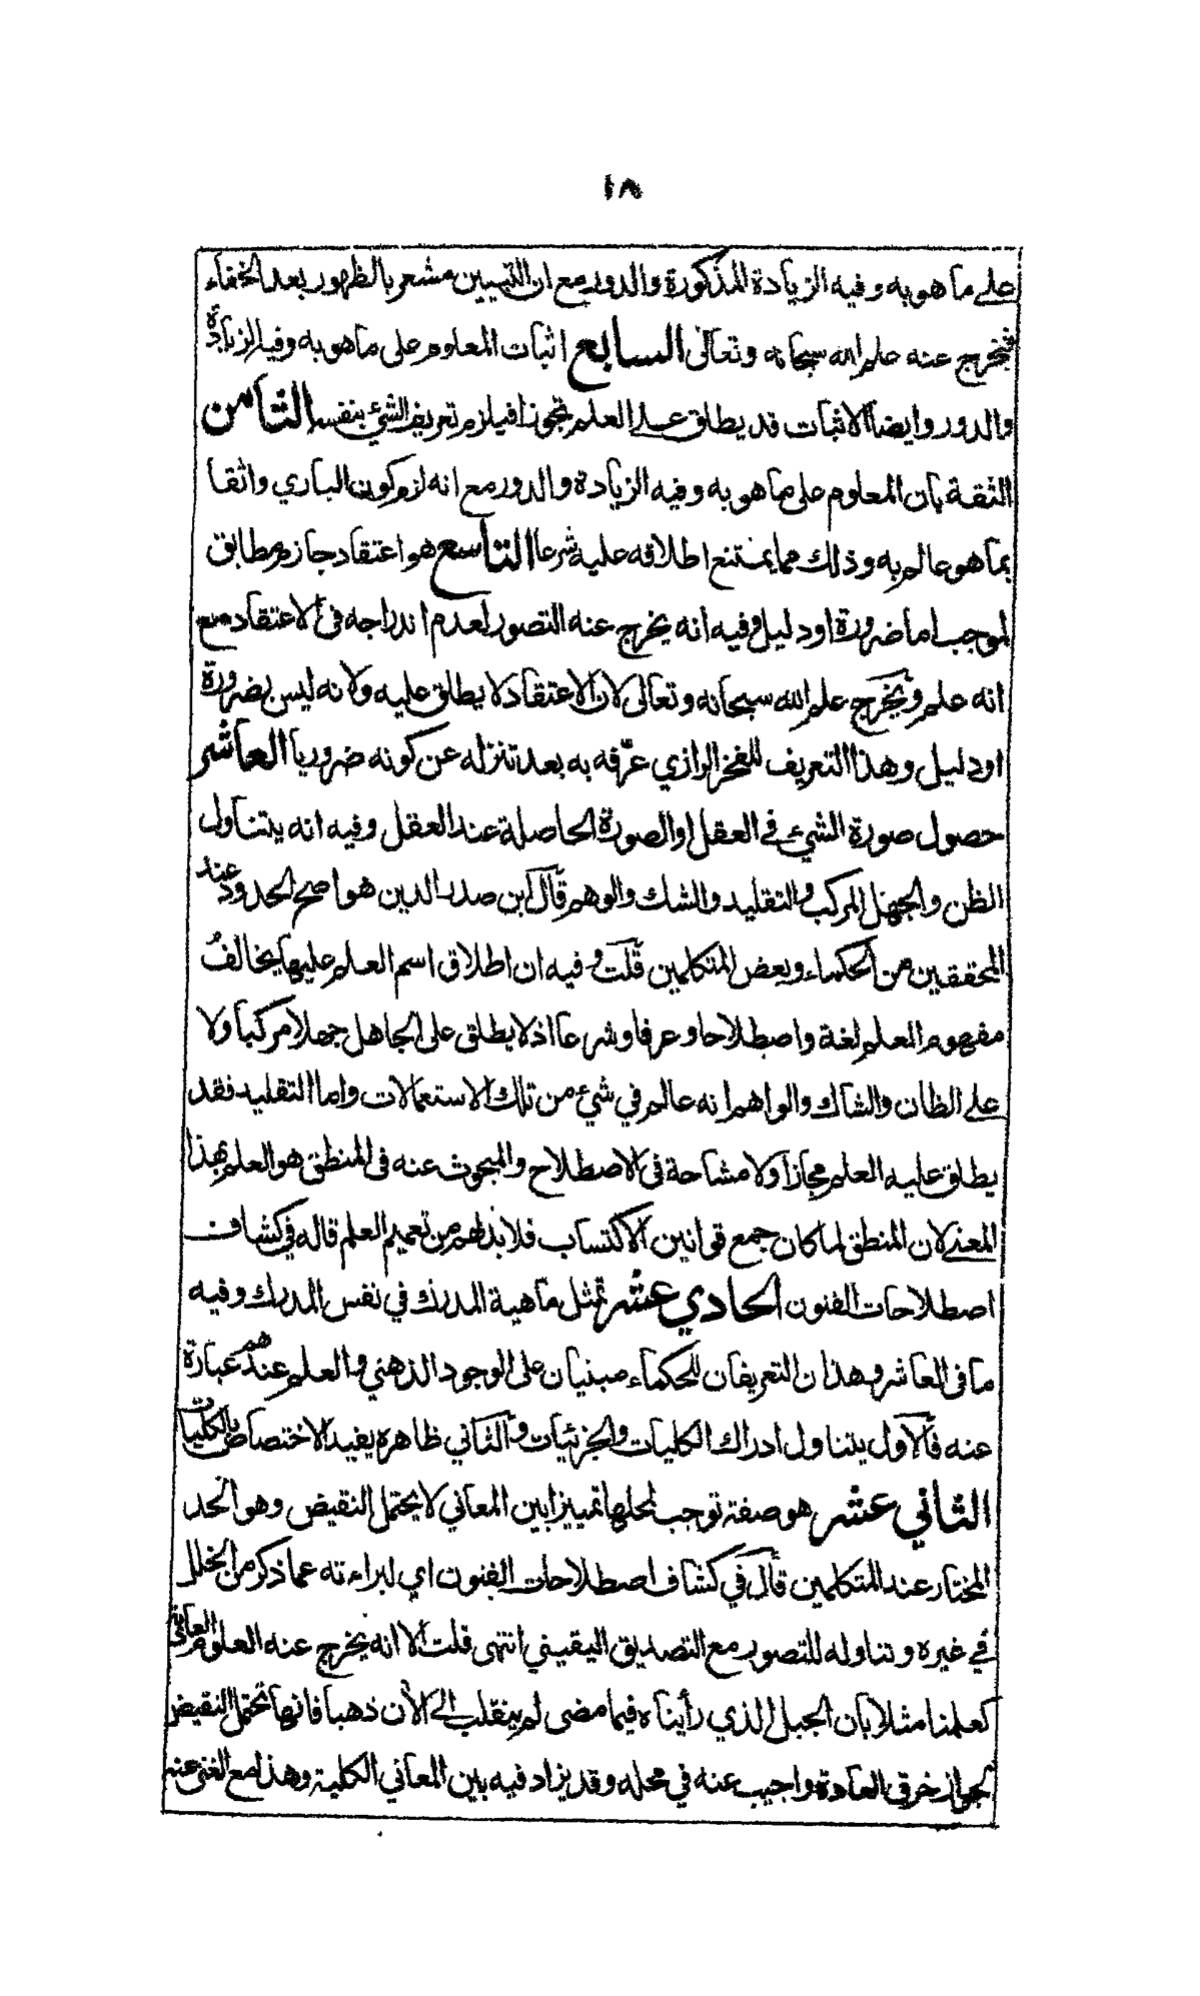 ١٨
على ما هو به وفيه الزيادة المذكورة والدور مع ان التبيين مشعر بالظهور بعد الخفاء
فيخرج عنه علم الله سبحانه وتعالى السابع اثبات المعلوم على ما هو به وفيه الزيادة
والدور وايضا الاثبات قد يطلق على العلم تجوزا فيلزم تعريف الشئ بنفسه الثامن
الثقة بان المعلوم على ما هو به وفيه الزيادة والدور مع انه لزم كون الباري واثقا
بما هو عالم به وذلك مما يمتنع اطلاقه عليه شرعا التاسع هو اعتقاد جازم مطابق
لموجب اما ضرورة او دليل وفيه انه يخرج عنه التصور لعدم اندراجه في الاعتقاد مع
انه علم ويخرج علم الله سبحانه وتعالى لان الاعتقاد لا يطلق عليه ولانه ليس بضرورة
او دليل وهذا التعريف للفخر الرازي عرّفه به بعد تنزله عن كونه ضروريا العاشر
حصول صورة الشئ في العقل او الصورة الحاصلة عند العقل وفيه انه يتناول
الظن والجهل المركب والتقليد والشك والوهم قال ابن صدر الدين هو اصح الحدود عند
المحققين من الحكماء وبعض المتكلمين قلت وفيه ان اطلاق اسم العلم عليها يخالف
مفهوم العلم لغة واصطلاحا وعرفا وشرعا اذ لا يطلق على الجاهل جهلا مركبا ولا
على الظان والشاك والواهم انه عالم في شئ من تلك الاستعمالات واما التقليد فقد
يطلق عليه العلم مجازا ولا مشاحة في الاصطلاح والمبحوث عنه في المنطق هو العلم بهذا
المعنى لان المنطق لما كان جمع قوانين الاكتساب فلا بد لهم من تعميم العلم قاله في كشاف
اصطلاحات الفنون الحادي عشر تمثل ماهية المدرك في نفس المدرك وفيه
ما في العاشر وهذان التعريفان للحكماء مبنيان على الوجود الذهني والعلم عندهم عبارة
عنه فالاول يتناول ادراك الكليات والجزئيات والثاني ظاهره يفيد الاختصاص بالكليات
الثاني عشر هو صفة توجب لمحلها تمييزا بين المعاني لا يحتمل النقيض وهو الحد
المختار عند المتكلمين قال في كشاف اصطلاحات الفنون اي لبراءته عما ذكر من الخلل
في غيره وتناوله للتصور مع التصديق اليقيني انتهى قلت الا انه يخرج عنه العلوم العادية
كعلمنا مثلا بان الجبل الذي رأيناه فيما مضى لم ينقلب الى الأن ذهبا فانها تحتمل النقيض
لجواز خرق العادة واجيب عنه في محله وقد يزاد فيه بين المعاني الكلية وهذا مع الغنى عنه